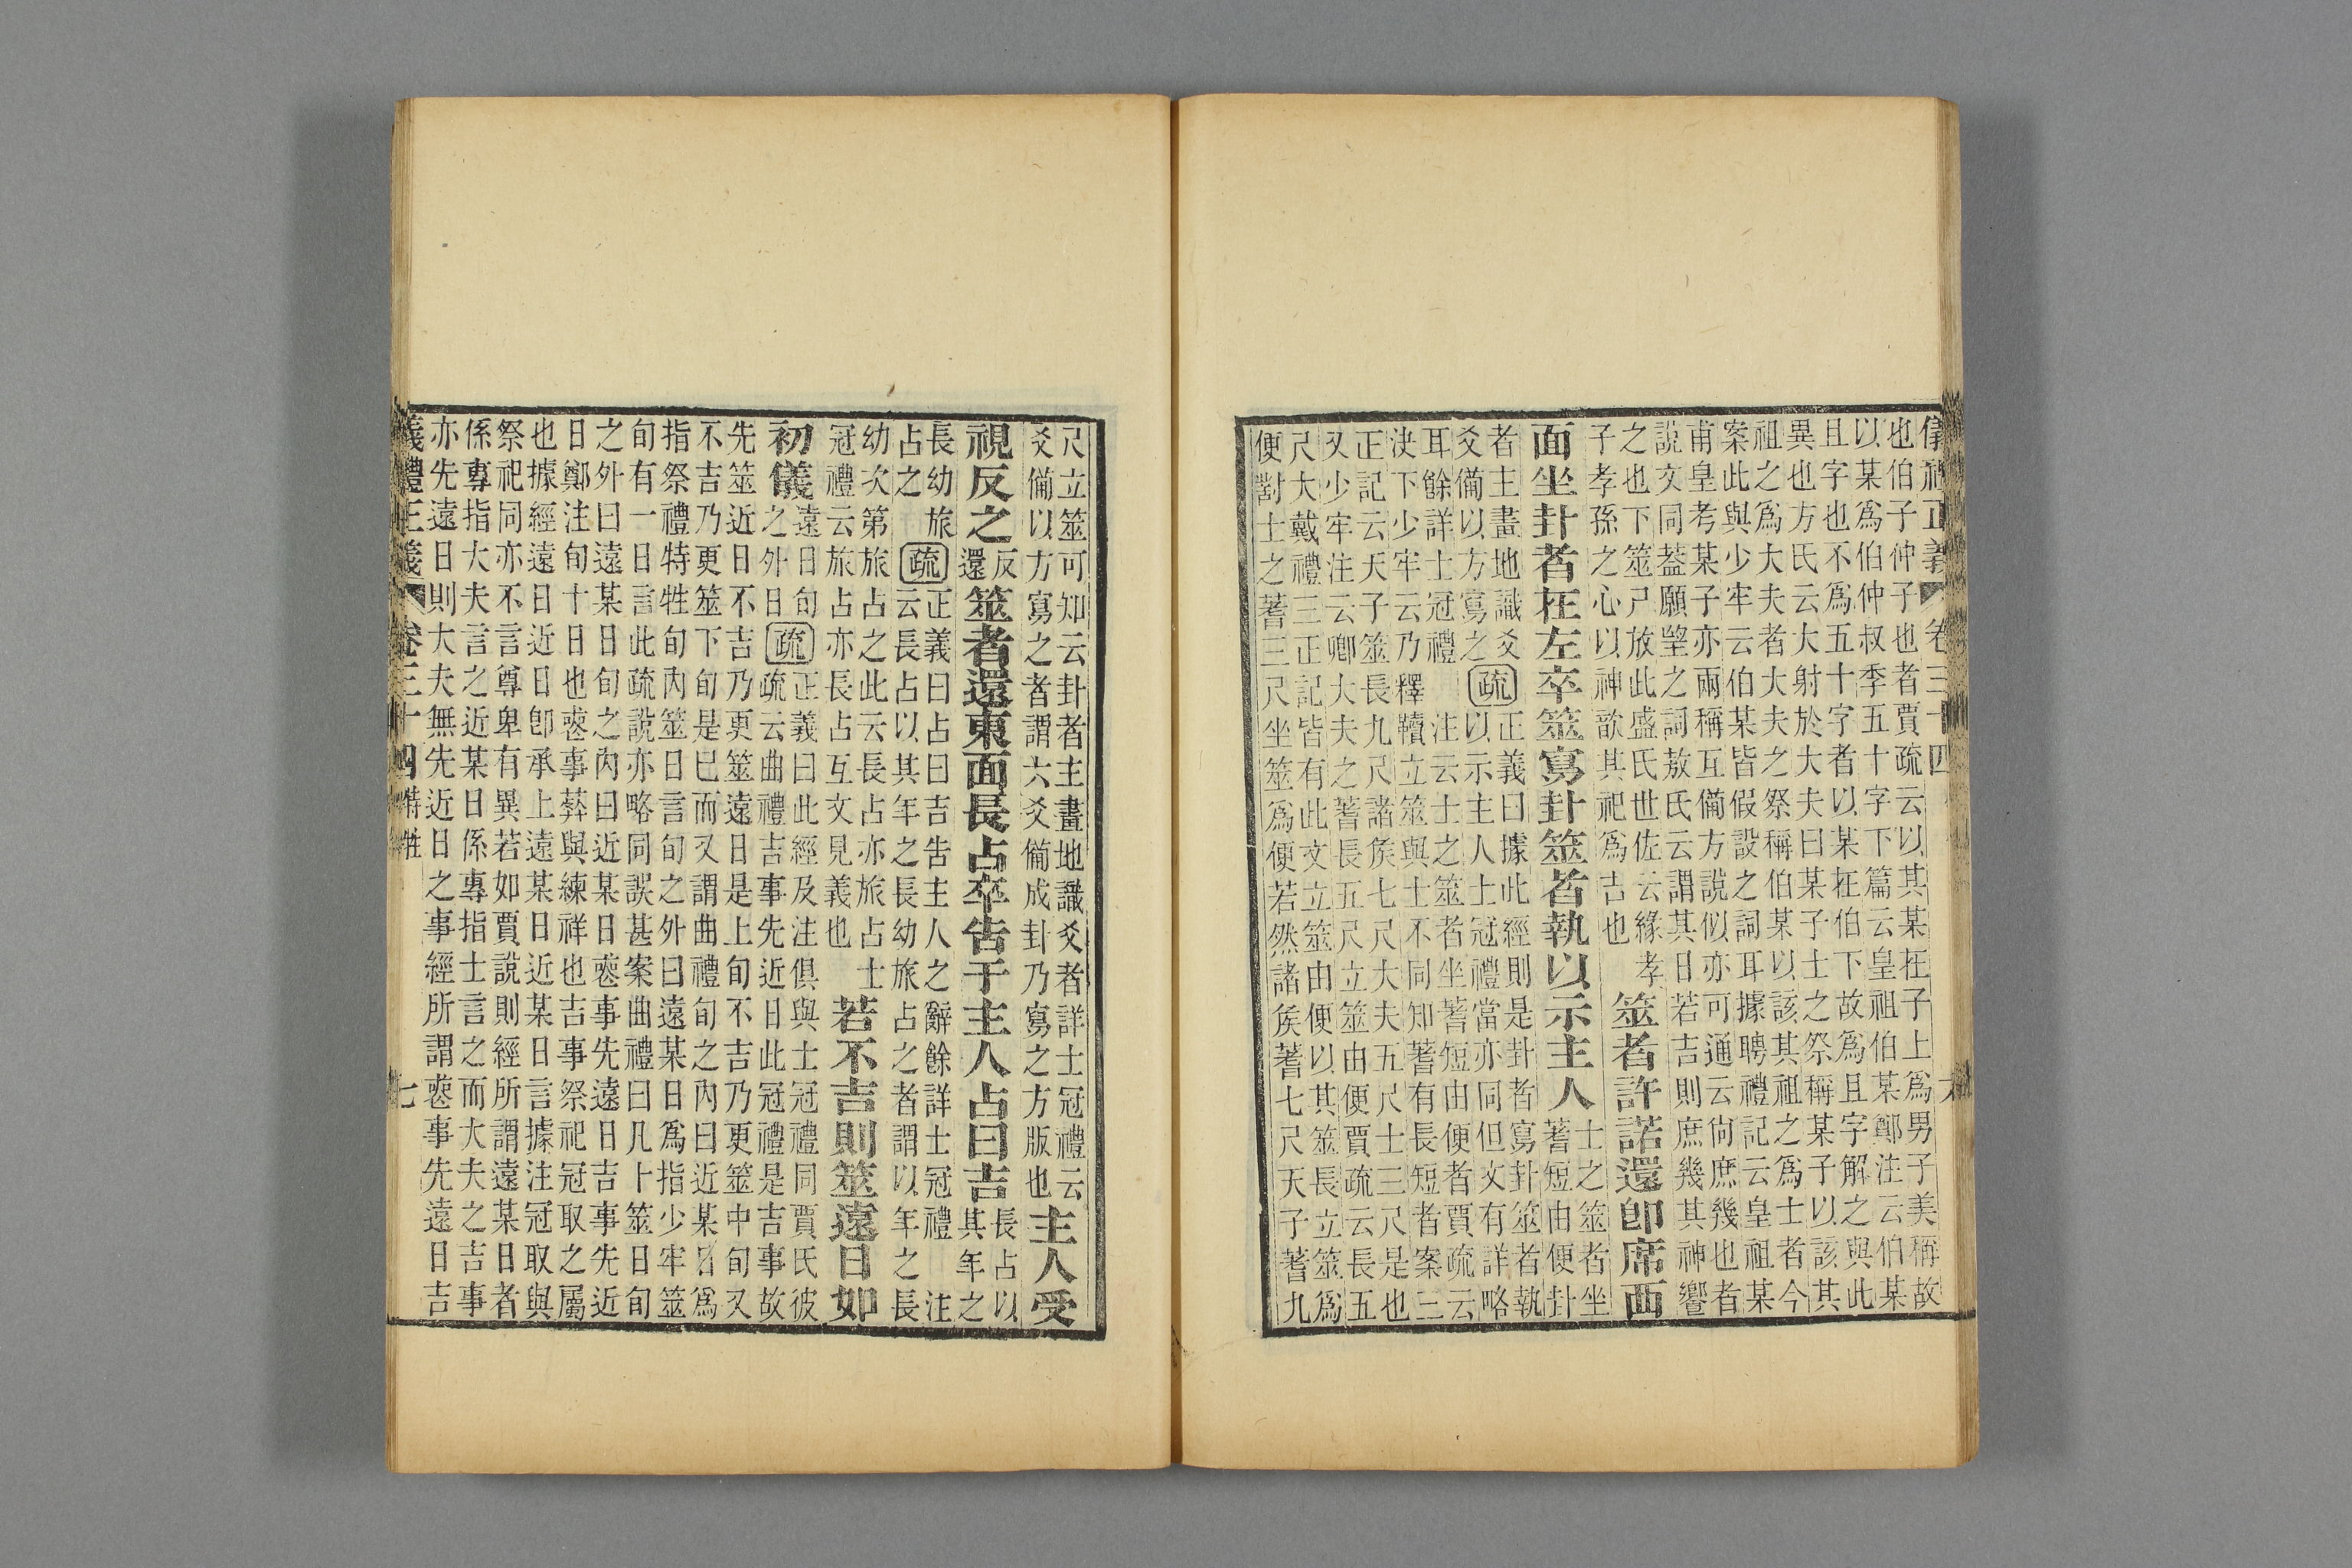 儀禮正義 卷三十四 六
也伯子仲子也者賈疏云以其某在子上爲男子美稱故
以某爲伯仲叔季五十字下篇云皇祖伯某鄭注云伯某
且字也不爲五十字者以某在伯下故爲且字解之與此
異也方氏云大射於大夫曰某子士之祭稱某子以該其
祖之爲大夫者大夫之祭稱伯某以該其祖之爲士者今
案此與少牢云伯某皆假設之詞耳據聘禮記云皇祖某
甫皇考某子亦兩稱互備方說似亦可通云尙庶幾也者
說文同葢願望之詞敖氏云謂其日若吉則庶幾其神饗
之也下筮尸放此盛氏世佐云緣孝
子孝孫之心以神歆其祀爲吉也
筮者許諾還卽席西
面坐卦者在左卒筮寫卦筮者執以示主人
士之筮者坐
蓍短由便卦
者主畫地識爻
爻備以方寫之
疏
正義曰據此經則是卦者寫卦筮者執
以示主人士冠禮當亦同但文有詳略
耳餘詳士冠禮 注云士之筮者坐蓍短由便者賈疏云
決下少牢云乃釋韇立筮與士不同知蓍有長短者案三
正記云天子筮長九尺諸矦七尺大夫五尺士三尺是也
又少牢注云卿大夫之蓍長五尺立筮由便賈疏云長五
尺大戴禮三正記皆有此文立筮由便以其筮長立筮爲
便對士之蓍三尺坐筮爲便若然諸矦蓍七尺天子蓍九
尺立筮可知云卦者主畫地識爻者詳士冠禮云
爻備以方寫之者謂六爻備成卦乃寫之方版也
主人受
視反之
反
還
筮者還東面長占卒告于主人占曰吉
長占以
其年之
長幼旅
占之
疏
正義曰占曰吉告主人之辭餘詳士冠禮 注
云長占以其年之長幼旅占之者謂以年之長
幼次第旅占之此云長占亦旅占士
冠禮云旅占亦長占互文見義也
若不吉則筮遠日如
初儀
遠日旬
之外日
疏
正義曰此經及注俱與士冠禮同賈氏彼
疏云曲禮吉事先近日此冠禮是吉事故
先筮近日不吉乃更筮遠日是上旬不吉乃更筮中旬又
不吉乃更筮下旬是已而又謂曲禮旬之內曰近某日爲
指祭禮特牲旬內筮日言旬之外曰遠某日爲指少牢筮
旬有一日言此疏說亦略同誤甚案曲禮曰凡卜筮日旬
之外曰遠某日旬之內曰近某日喪事先遠日吉事先近
日鄭注旬十日也喪事葬與練祥也吉事祭祀冠取之屬
也據經遠日近日卽承上遠某日近某日言據注冠取與
祭祀同亦不言尊卑有異若如賈說則經所謂遠某日者
係專指大夫言之近某日係專指士言之而大夫之吉事
亦先遠日則大夫無先近日之事經所謂喪事先遠日吉
儀禮正義 卷三十四 特牲 七